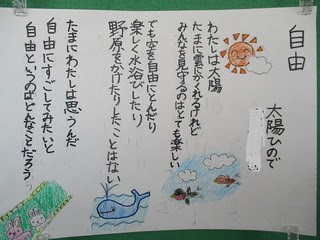 自由
太陽ひので
わたしは太陽
たまに雲にかくれるけれど
みんなを見守るのはとても楽しい
でも空を自由にとんだり
楽しく水浴びしたり
野原をかけたりしたことはない
たまにわたしは思うんだ
自由にすごしてみたいと
自由というのはどんなことだろう